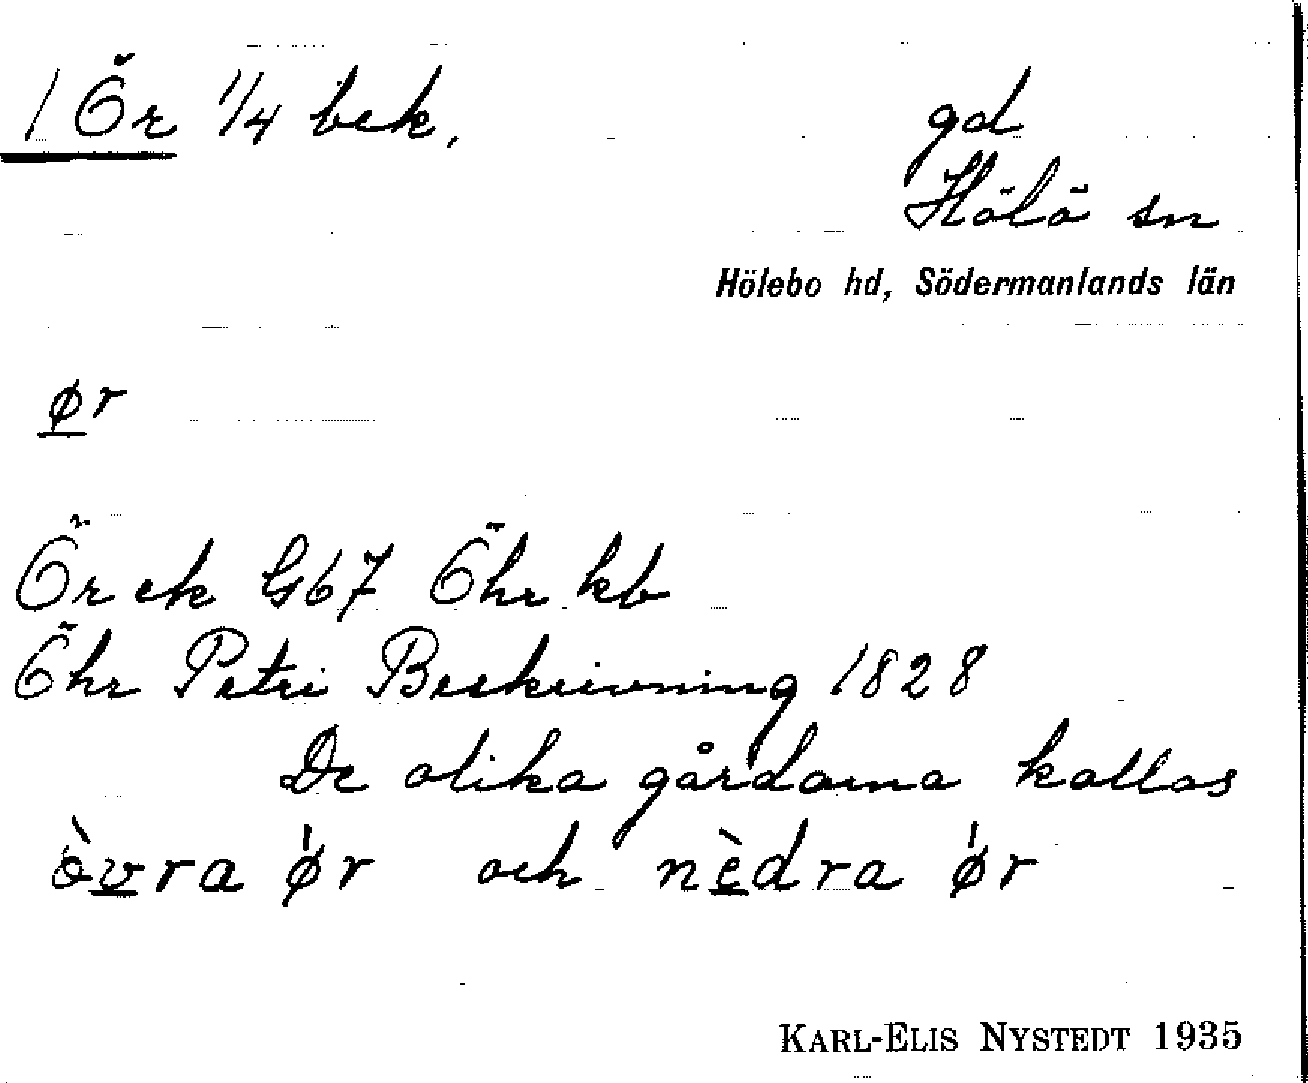 1 Ör 1/4 bek.
gd
Hölö sn
Hölebo hd, Södermanlands län
ør
Ör ek G67 Öhr kb
Öhr Petri Beskrivning 1828
De olika gårdarna kallas
òvra ǿr och nèdra ǿr
KARL-ELIS NYSTEDT 1935